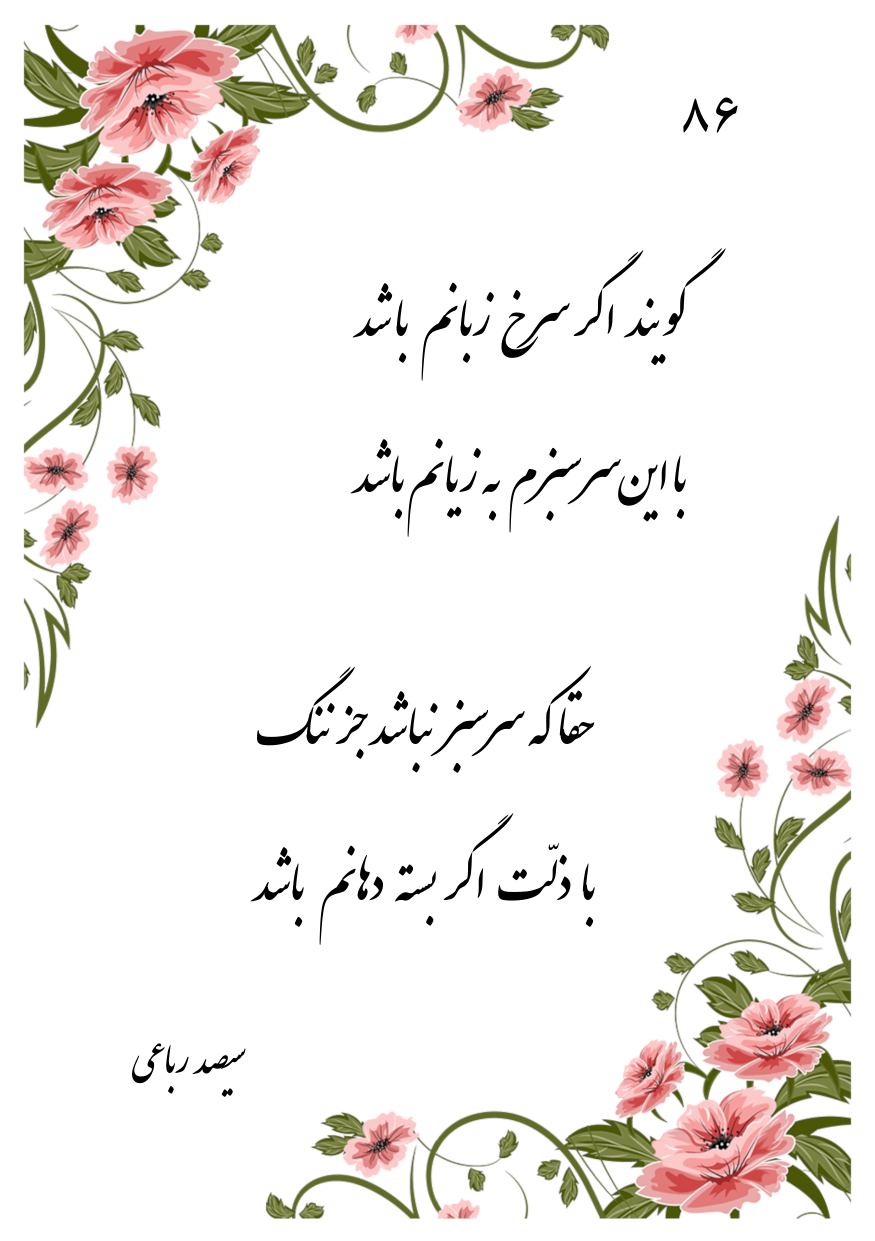 ۸۶
گویند اگر سرخ زبانم باشد
با این سر سبزم به زیانم باشد
حقا که سر سبز نباشد جز ننگ
با ذلّت اگر بسته دهانم باشد
سیصد رباعی